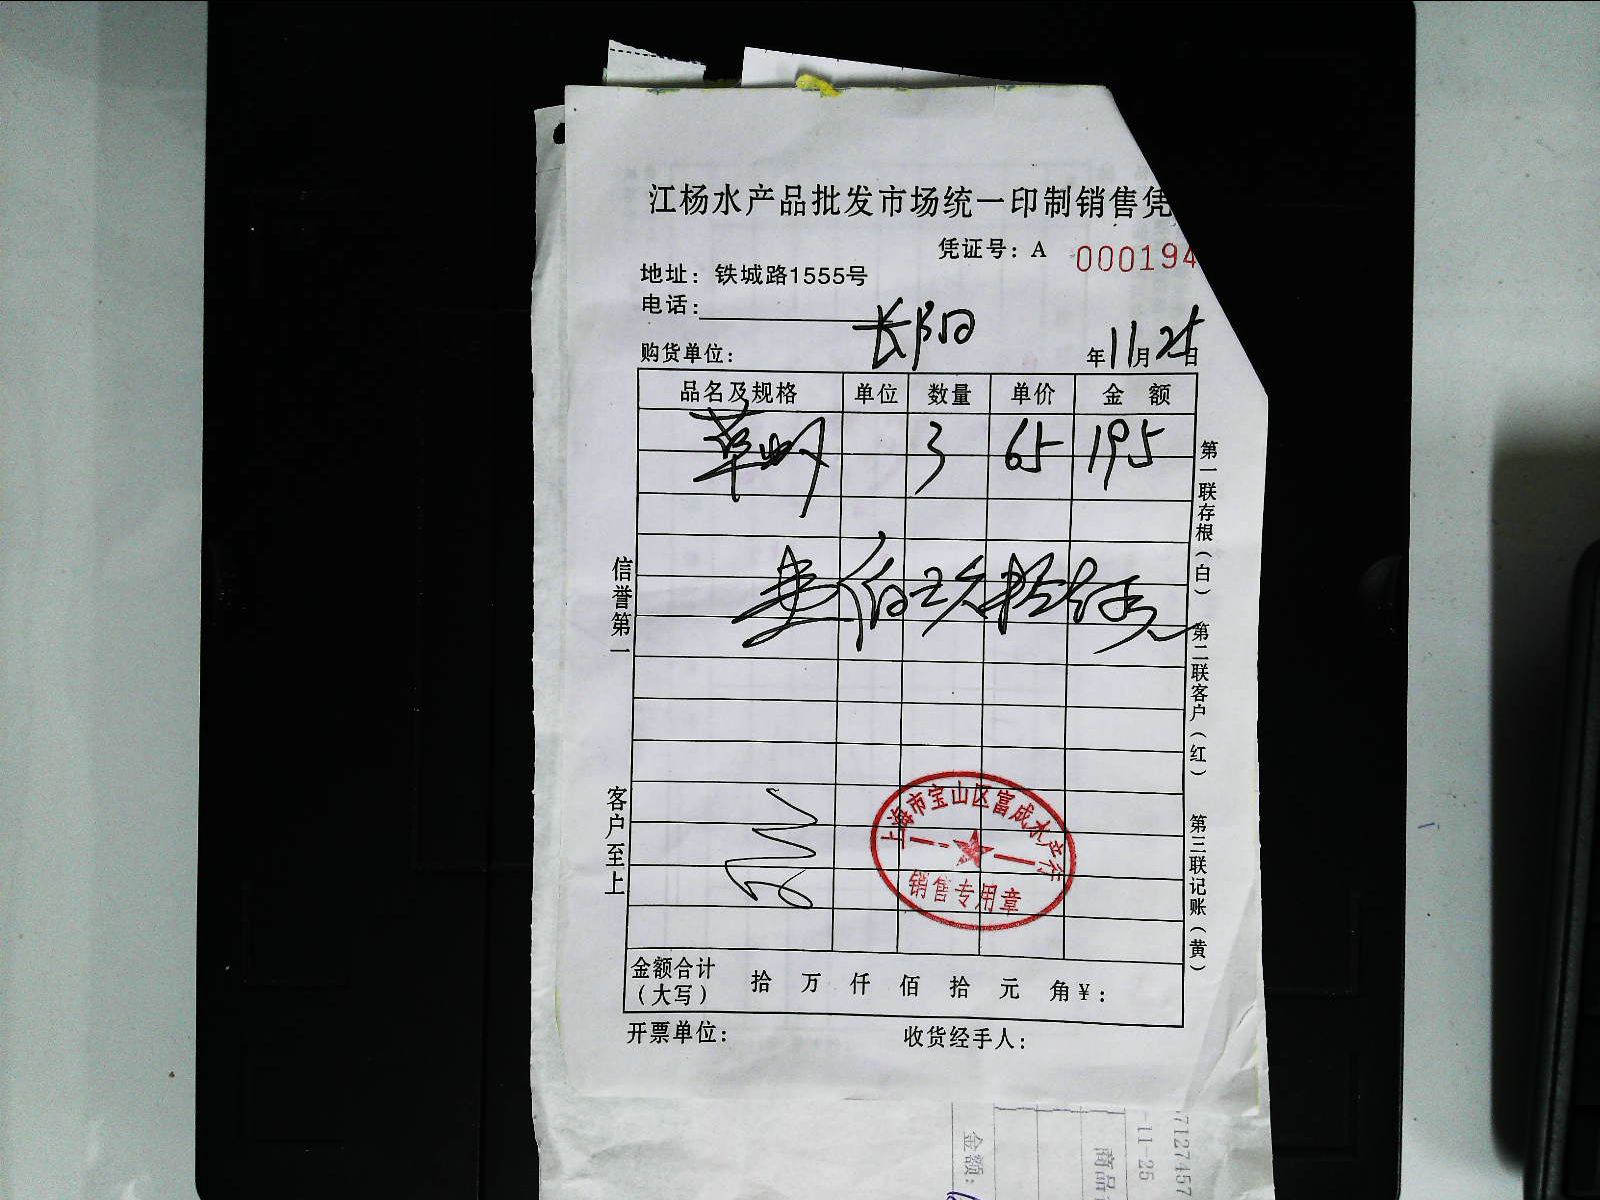 江杨水产品批发市场统一印制销售凭
凭证号：A 000194
地址：铁城路1555号
电话：
长阳
购货单位： 年11月25日
品名及规格 单位 数量 单价 金额
草虾 3 65 195
壹佰玖拾伍元
信誉第一
客户至上
第一联存根（白）
第二联客户（红）
第三联记账（黄）
上海市宝山区富成水产行
销售专用章
金额合计（大写） 拾 万 仟 佰 拾 元 角 ¥：
开票单位： 收货经手人：
金额：
商品
-11-25
7127457